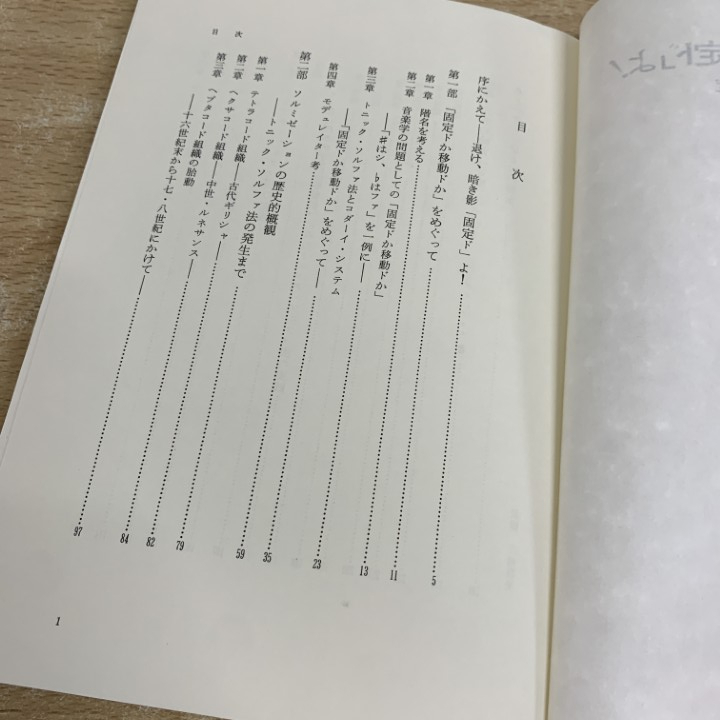 目次
序にかえて――退け、暗き影「固定ド」よ！
第一部 「固定ドか移動ドか」をめぐって
5
第一章 階名を考える
11
第二章 音楽学の問題としての「固定ドか移動ドか」
――「♯はシ、♭はファ」を一例に――
13
第三章 トニック・ソルファ法とコダーイ・システム
――「固定ドか移動ドか」をめぐって――
23
第四章 モデュレイター考
35
第二部 ソルミゼーションの歴史的概観
――トニック・ソルファ法の発生まで
59
第一章 テトラコード組織――古代ギリシャ――
79
第二章 ヘクサコード組織――中世・ルネサンス――
82
第三章 ヘプタコード組織の胎動
84
――十六世紀末から十七・八世紀にかけて――
97
目次
1